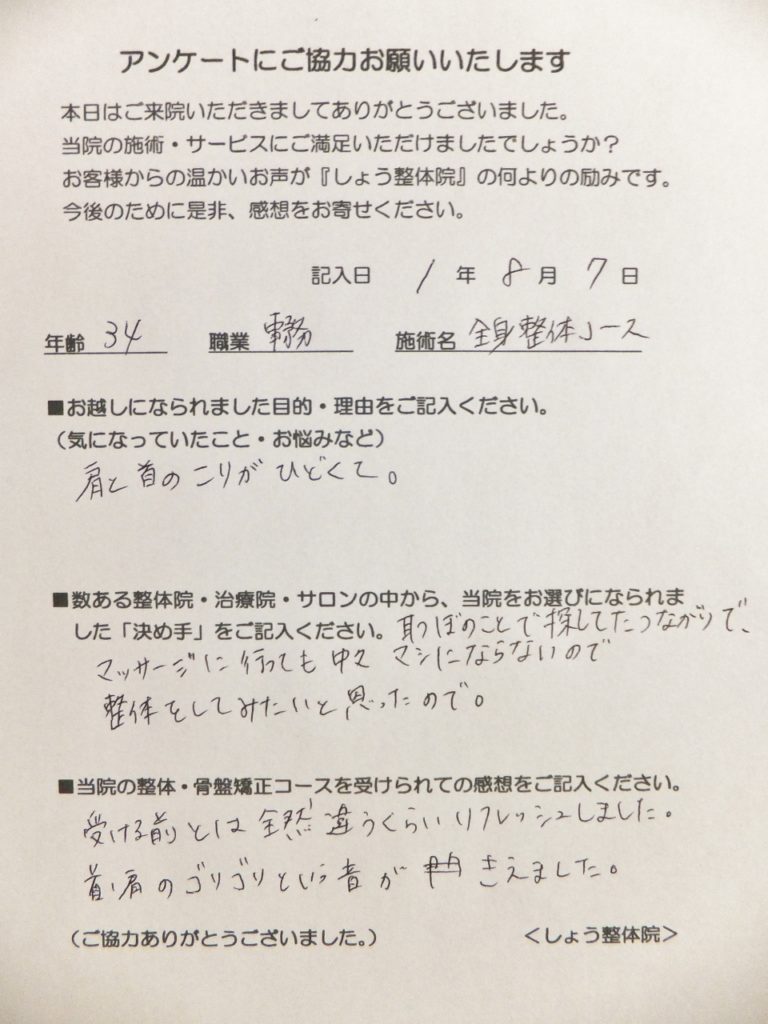 アンケートにご協力お願いいたします
本日はご来院いただきましてありがとうございました。
当院の施術・サービスにご満足いただけましたでしょうか？
お客様からの温かいお声が『しょう整体院』の何よりの励みです。
今後のために是非、感想をお寄せください。
記入日 1 年 8 月 7 日
年齢 34 職業 事務 施術名 全身整体コース
■お越しになられました目的・理由をご記入ください。
（気になっていたこと・お悩みなど）
肩と首のこりがひどくて。
■数ある整体院・治療院・サロンの中から、当院をお選びになられま
した「決め手」をご記入ください。耳つぼのことで探してたつながりで、
マッサージに行っても中々マシにならないので
整体をしてみたいと思ったので。
■当院の整体・骨盤矯正コースを受けられての感想をご記入ください。
受ける前とは全然違うくらいリフレッシュしました。
首・肩のゴリゴリという音がきえました。
（ご協力ありがとうございました。） ＜しょう整体院＞